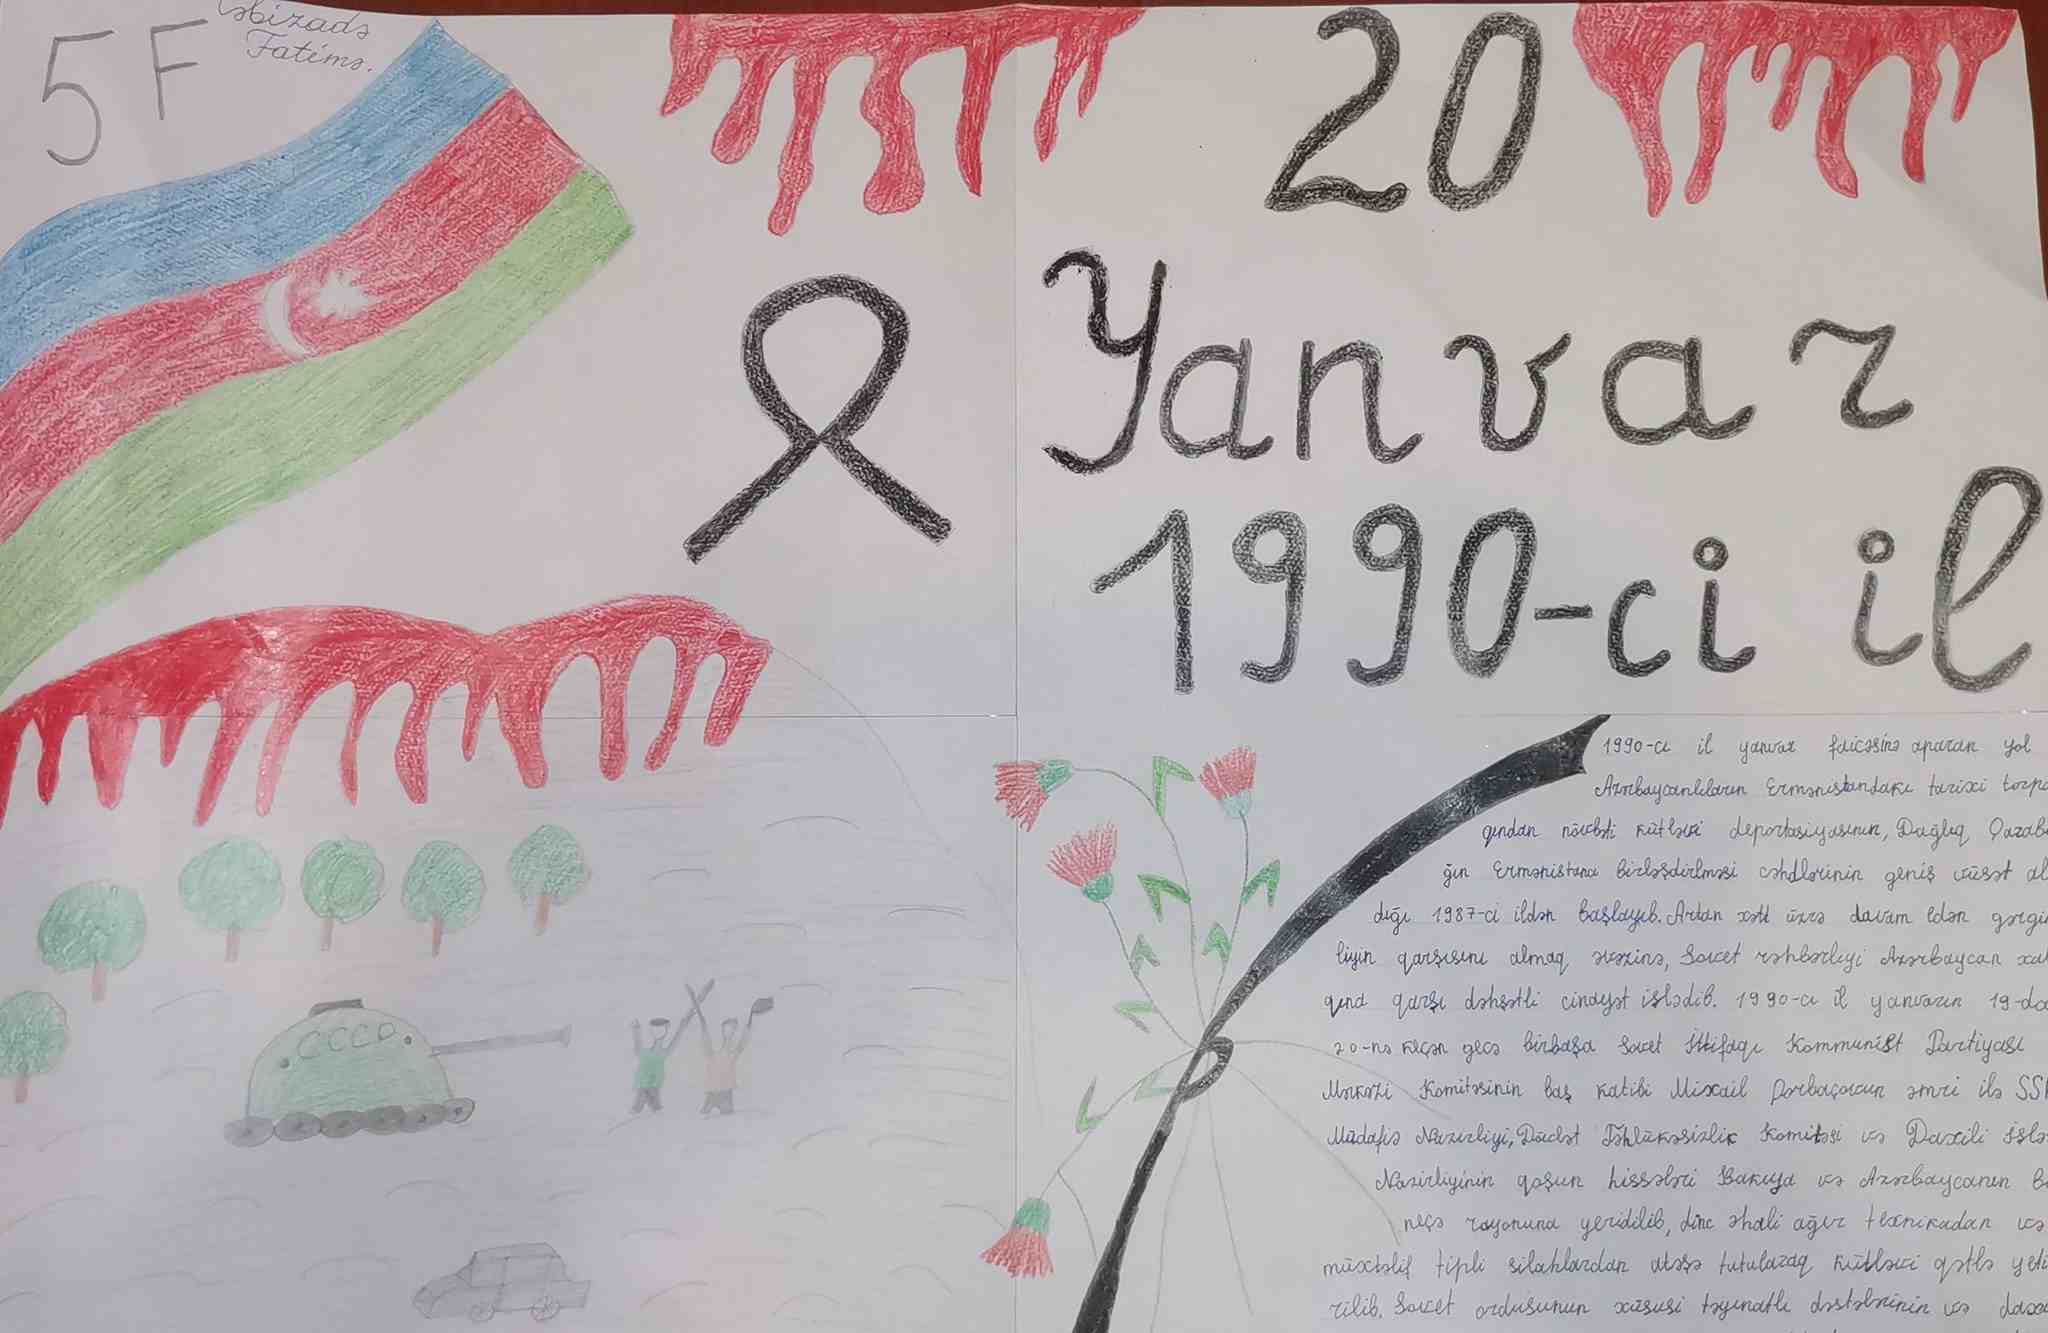 5 F
Fatimə.
20
Yanvar
1990-ci il
CCCP
1990-cı il yanvar faicəsinə aparan yol
Azərbaycanlıların Ermənistandakı tarixi torpa
qından növbəti kütləvi deportasiyasının, Dağlıq Qazaba
ğın Ermənistana birləşdirilməsi cəhdlərinin geniş vüsət al
dığı 1987-ci ildən başlayıb. Artan xətt üzrə davam edən gərgin
liyin qarşısını almaq əvəzinə, Sovet rəhbərliyi Azərbaycan xal
qına qarşı dəhşətli cinayət işlədib. 1990-cı il yanvarın 19-da
20-nə keçən gecə birbaşa Sovet İttifaqı Kommunist Partiyası
Mərkəzi Komitəsinin baş katibi Mixail Qorbaçovun əmri ilə SSR
Müdafiə Nazirliyi, Dövlət Təhlükəsizlik Komitəsi və Daxili İşlə
Nazirliyinin qoşun hissələri Bakıya və Azərbaycanın bi
neçə rayonuna yeridilib, dinc əhali ağır texnikadan və
müxtəlif tipli silahlardan atəşə tutularaq kütləvi qətlə yeti
rilib. Sovet ordusunun xüsusi təyinatlı dəstələrinin və daxi